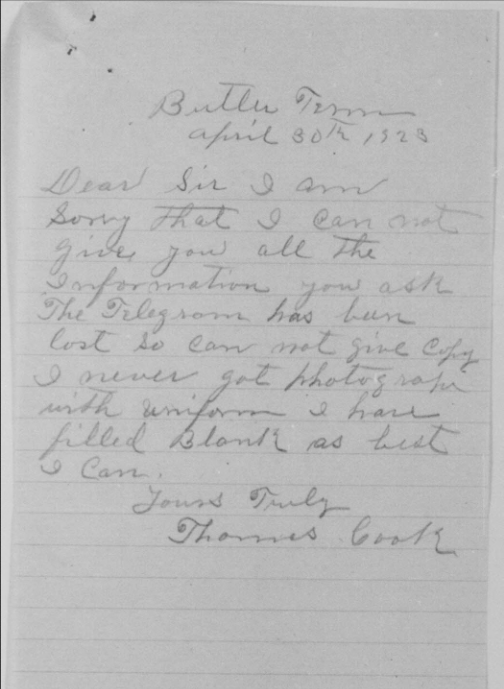 Butler Tenn
April 30th 1923
Dear Sir I am
Sorry that I can not
give you all the
Information you ask
The Telegram has been
lost so can not give copy
I never got photograph
with uniform I have
filled Blank as best
I can.
Yours Truly
Thomas Cook